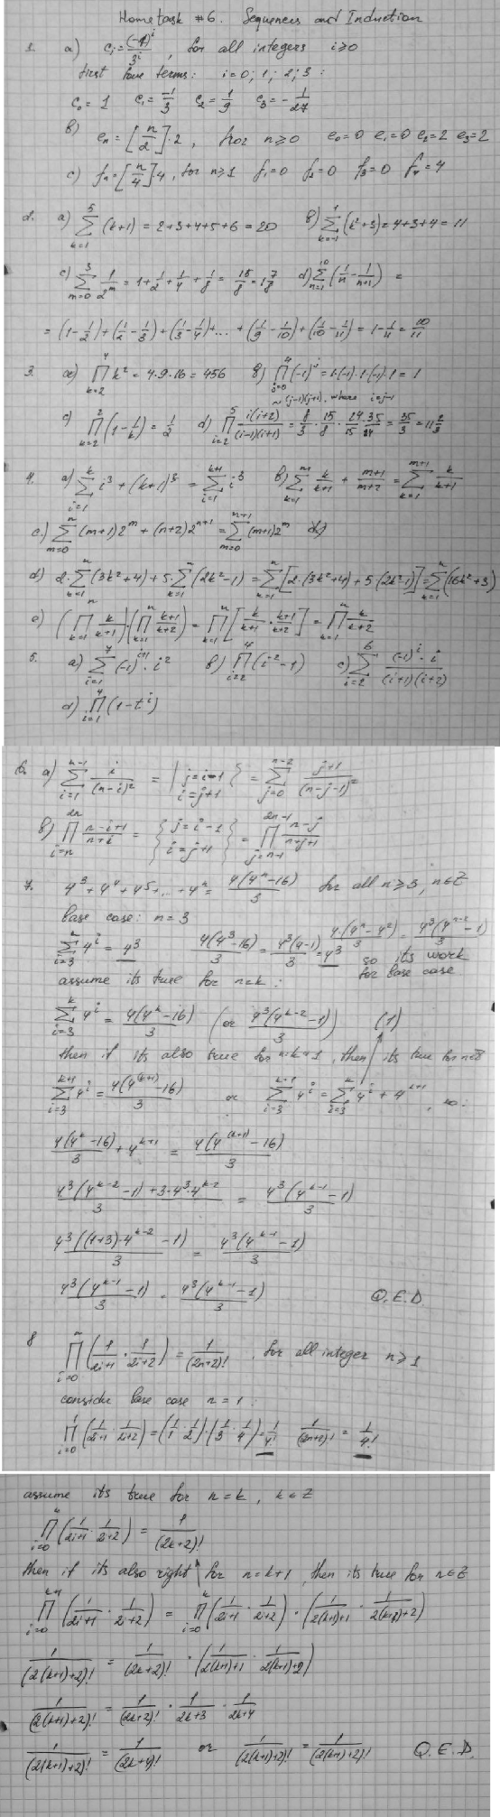 Hometask #6. Sequences and Induction
1. a) c_i = (-1)^i / 3^i, for all integers i ≥ 0
first four terms: i = 0; 1; 2; 3:
c_0 = 1 c_1 = -1/3 c_2 = 1/9 c_3 = -1/27
b) e_n = [n/2]·2, for n ≥ 0 e_0 = 0 e_1 = 0 e_2 = 2 e_3 = 2
c) f_n = [n/4]·4, for n ≥ 1 f_1 = 0 f_2 = 0 f_3 = 0 f_4 = 4
2. a) ∑_{k=1}^{5} (k+1) = 2+3+4+5+6 = 20 b) ∑_{k=-1}^{1} (k²+3) = 4+3+4 = 11
c) ∑_{m=0}^{3} 1/2^m = 1 + 1/2 + 1/4 + 1/8 = 15/8 = 1 7/8 d) ∑_{n=1}^{10} (1/n - 1/(n+1)) =
= (1 - 1/2) + (1/2 - 1/3) + (1/3 - 1/4) + ... + (1/9 - 1/10) + (1/10 - 1/11) = 1 - 1/11 = 10/11
3. a) ∏_{k=2}^{4} k² = 4·9·16 = 456 b) ∏_{j=0}^{4} (-1)^j = 1·(-1)·1·(-1)·1 = 1
~(j-1)(j+1), where i=j-1
c) ∏_{k=2}^{2} (1 - 1/k) = 1/2 d) ∏_{i=2}^{5} i(i+2) / (i-1)(i+1) = 8/3 · 15/8 · 24/15 · 35/24 = 35/3 = 11 2/3
4. a) ∑_{i=1}^{k} i³ + (k+1)³ = ∑_{i=1}^{k+1} i³ b) ∑_{k=1}^{m} k/(k+1) + (m+1)/(m+2) = ∑_{k=1}^{m+1} k/(k+1)
c) ∑_{m=0}^{n} (m+1)2^m + (n+2)2^{n+1} = ∑_{m=0}^{n+1} (m+1)2^m
d) 2·∑_{k=1}^{n} (3k²+4) + 5·∑_{k=1}^{n} (2k²-1) = ∑_{k=1}^{n} [2·(3k²+4) + 5(2k²-1)] = ∑_{k=1}^{n} (16k²+3)
e) (∏_{k=1}^{n} k/(k+1))·(∏_{k=1}^{n} (k+1)/(k+2)) = ∏_{k=1}^{n} [k/(k+1) · (k+1)/(k+2)] = ∏_{k=1}^{n} k/(k+2)
5. a) ∑_{i=1}^{7} (-1)^{i+1}·i² b) ∏_{i=2}^{4} (i²-1) c) ∑_{i=2}^{6} (-1)^i·i / (i+1)(i+2)
d) ∏_{i=1}^{4} (1-t^i)
6. a) ∑_{i=1}^{n-1} i/(n-i)² = | j=i-1 i=j+1 } = ∑_{j=0}^{n-2} (j+1)/(n-j-1)²
b) ∏_{i=n}^{2n} (n-i+1)/(n+i) = { j=i-1 i=j+1 } = ∏_{j=n-1}^{2n-1} (n-j)/(n+j+1)
7. 4³+4⁴+4⁵+... - 4^n = 4(4^n-16)/3 for all n ≥ 3, n∈Z
base case: n=3
4·(4^n-4²)/3 = 4³(4^{n-2}-1)/3
∑_{i=3}^{n} 4^i = 4³ 4(4³-16)/3 = 4³(4-1)/3 = 4³ so its work
assume its true for n=k: for base case
∑_{i=3}^{k} 4^i = 4(4^k-16)/3 (or 4³(4^{k-2}-1)/3) (1)
then if its also true for n=k+1, then its true for n∈Z
∑_{i=3}^{k+1} 4^i = 4(4^{(k+1)}-16)/3 or ∑_{i=3}^{k+1} 4^i = ∑_{i=3}^{k} 4^i + 4^{k+1}, so:
4(4^k-16)/3 + 4^{k+1} = 4(4^{(k+1)}-16)/3
4³(4^{k-2}-1)+3·4³·4^{k-2} / 3 = 4³(4^{k-1}-1)/3
4³((1+3)·4^{k-2}-1)/3 = 4³(4^{k-1}-1)/3
4³(4^{k-1}-1)/3 = 4³(4^{k-1}-1)/3 Q.E.D.
8 ∏_{i=0}^{n} (1/(2i+1) · 1/(2i+2)) = 1/(2n+2)!, for all integer n ≥ 1
conside base case n=1:
∏_{i=0}^{1} (1/(2i+1) · 1/(2i+2)) = (1/1 · 1/2)·(1/3 · 1/4) = 1/4! 1/(2n+2)! = 1/4!
assume its true for n=k, k∈Z
∏_{i=0}^{k} (1/(2i+1) · 1/(2i+2)) = 1/(2k+2)!
then if its also right for n=k+1, then its true for n∈Z
∏_{i=0}^{k+1} (1/(2i+1) · 1/(2i+2)) = ∏_{i=0}^{k} (1/(2i+1) · 1/(2i+2)) · (1/(2(k+1)+1) · 1/(2(k+1)+2))
1/(2(k+1)+2)! = 1/(2k+2)! · (1/(2(k+1)+1) · 1/(2(k+1)+2))
1/(2(k+1)+2)! = 1/(2k+2)! · 1/(2k+3) · 1/(2k+4)
1/(2(k+1)+2)! = 1/(2k+4)! or 1/(2(k+1)+2)! = 1/(2(k+1)+2)! Q.E.D.